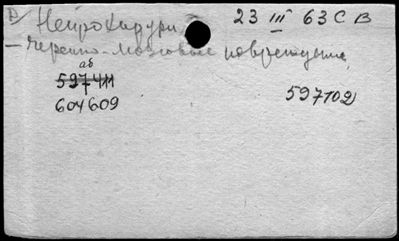 Нейрохирург 23 III 63 СВ
— Черепно-мозговые повреждения
аб
597411
604609
597102